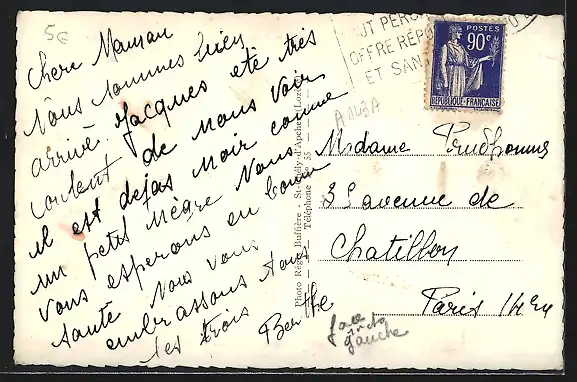 5€
Chere Maman
Nous sommes bien
arrivé. Jacques eté très
content de nous voir
il est dejas noir comme
un petit nègre Nous
vous esperons en bonne
santé Nous vous
embrassons tous
les trois
Berthe
Photo Régis Buffière - St-Chély d'Apcher (Lozère)
Téléphone 55
OFFRE REPO
ET SAN
POSTES
90c
REPUBLIQUE FRANÇAISE
A 143A
Madame Prudhommes
3 avenue de
Chatillon
Paris 14em
face
gauche